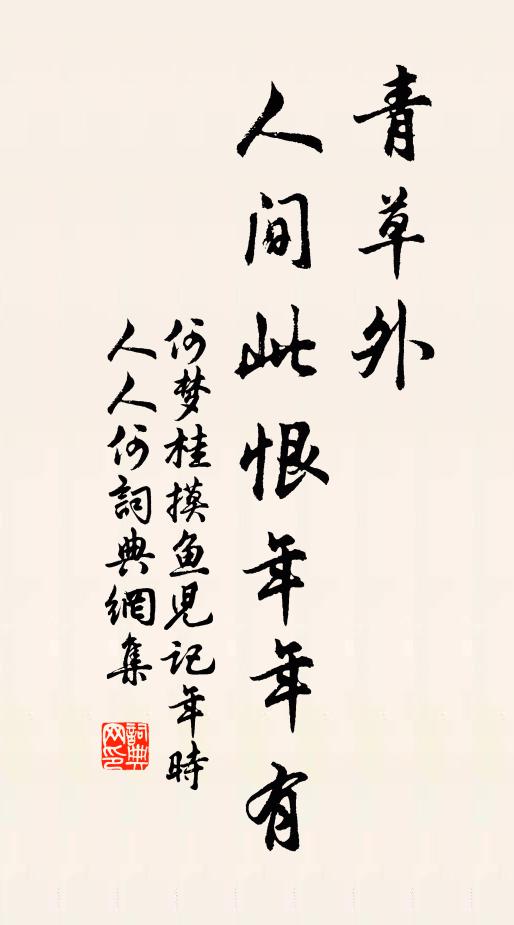 青草外
人间此恨年年有
何梦桂摸鱼児记年時
人人何詞典網集
詞典网印